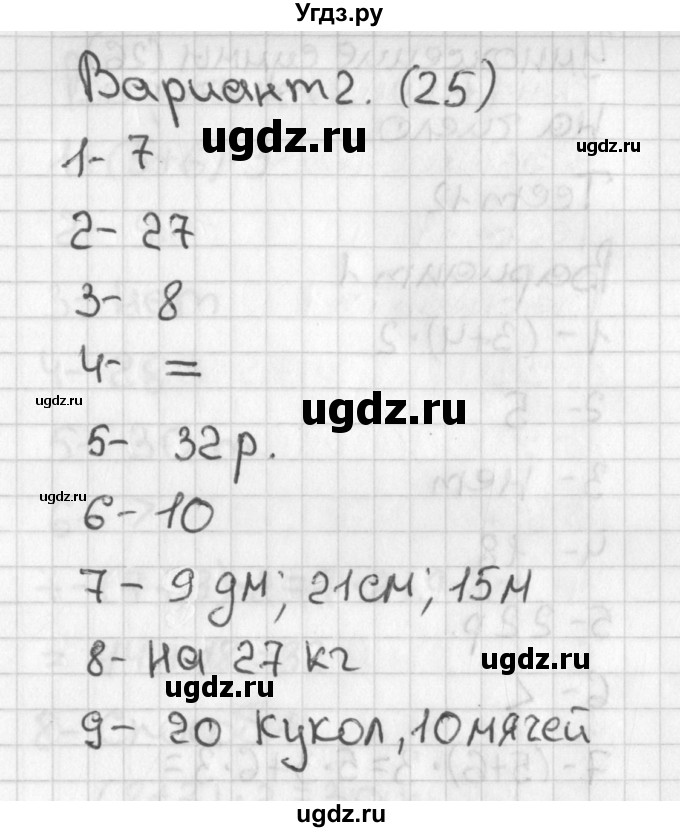 Угдз.ру
Вариант 2. (25)
ugdz.ru
ugdz.ru
1- 7
2- 27
3- 8
4- =
ugdz.ru
ugdz.ru
5- 32 р.
ugdz.ru
6- 10
7- 9 дм; 21 см; 15 м
8- на 27 кг
ugdz.ru
ugdz.ru
9- 20 кукол, 10 мячей
ugdz.ru